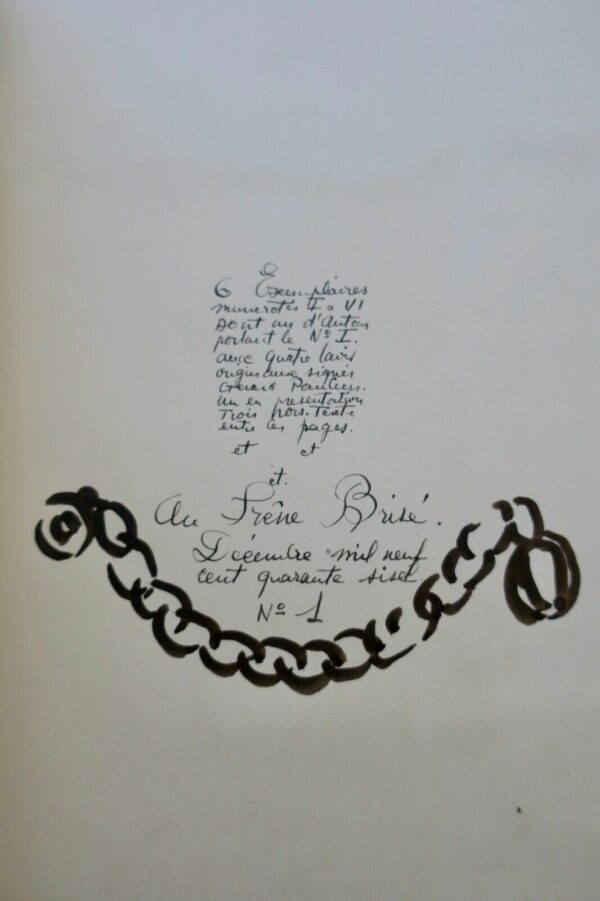 6 Exemplaires
numerotés I a VI
Dont un d'Auteur
portant le Nº I.
avec quatre lavis
originaux signés
Gerard
Un en presentation
Trois hors-texte
entre les pages.
et et
et.
Au Frêne Brisé.
Décembre mil neuf
cent quarante six
Nº 1